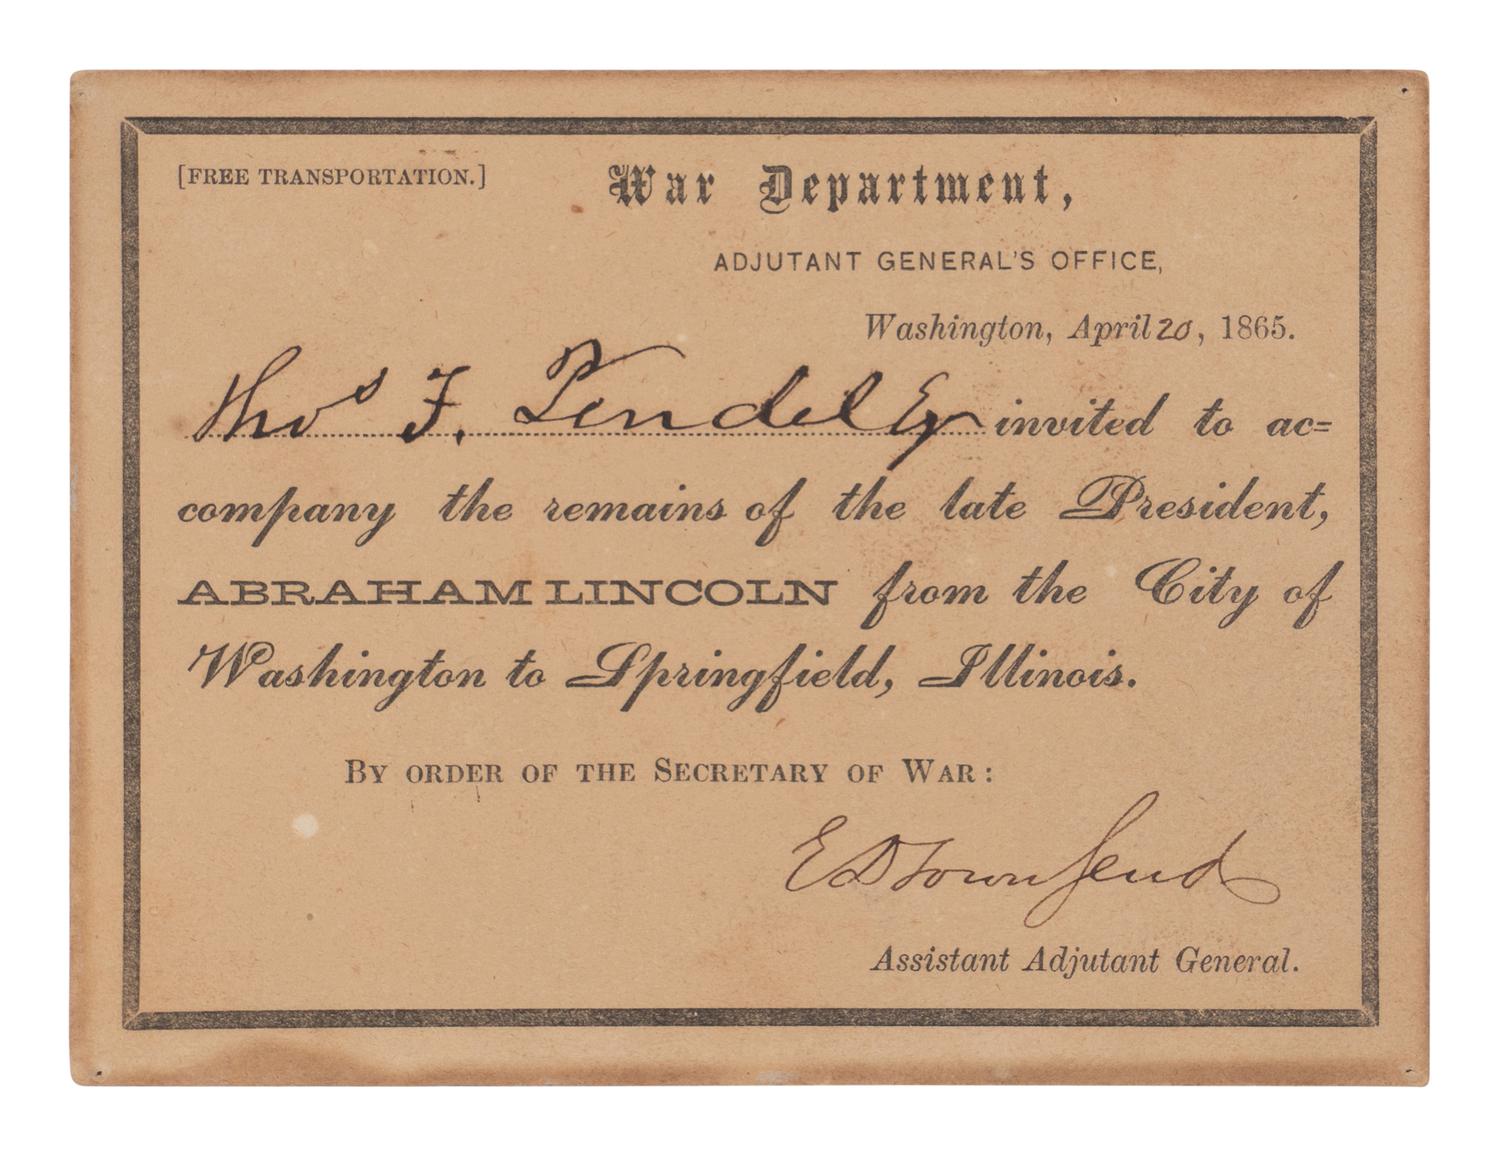 [FREE TRANSPORTATION.]
War Department,
ADJUTANT GENERAL'S OFFICE,
Washington, April 20, 1865.
Thos F. Pendel Esq invited to ac=
company the remains of the late President,
ABRAHAM LINCOLN from the City of
Washington to Springfield, Illinois.
BY ORDER OF THE SECRETARY OF WAR:
E D Townsend
Assistant Adjutant General.